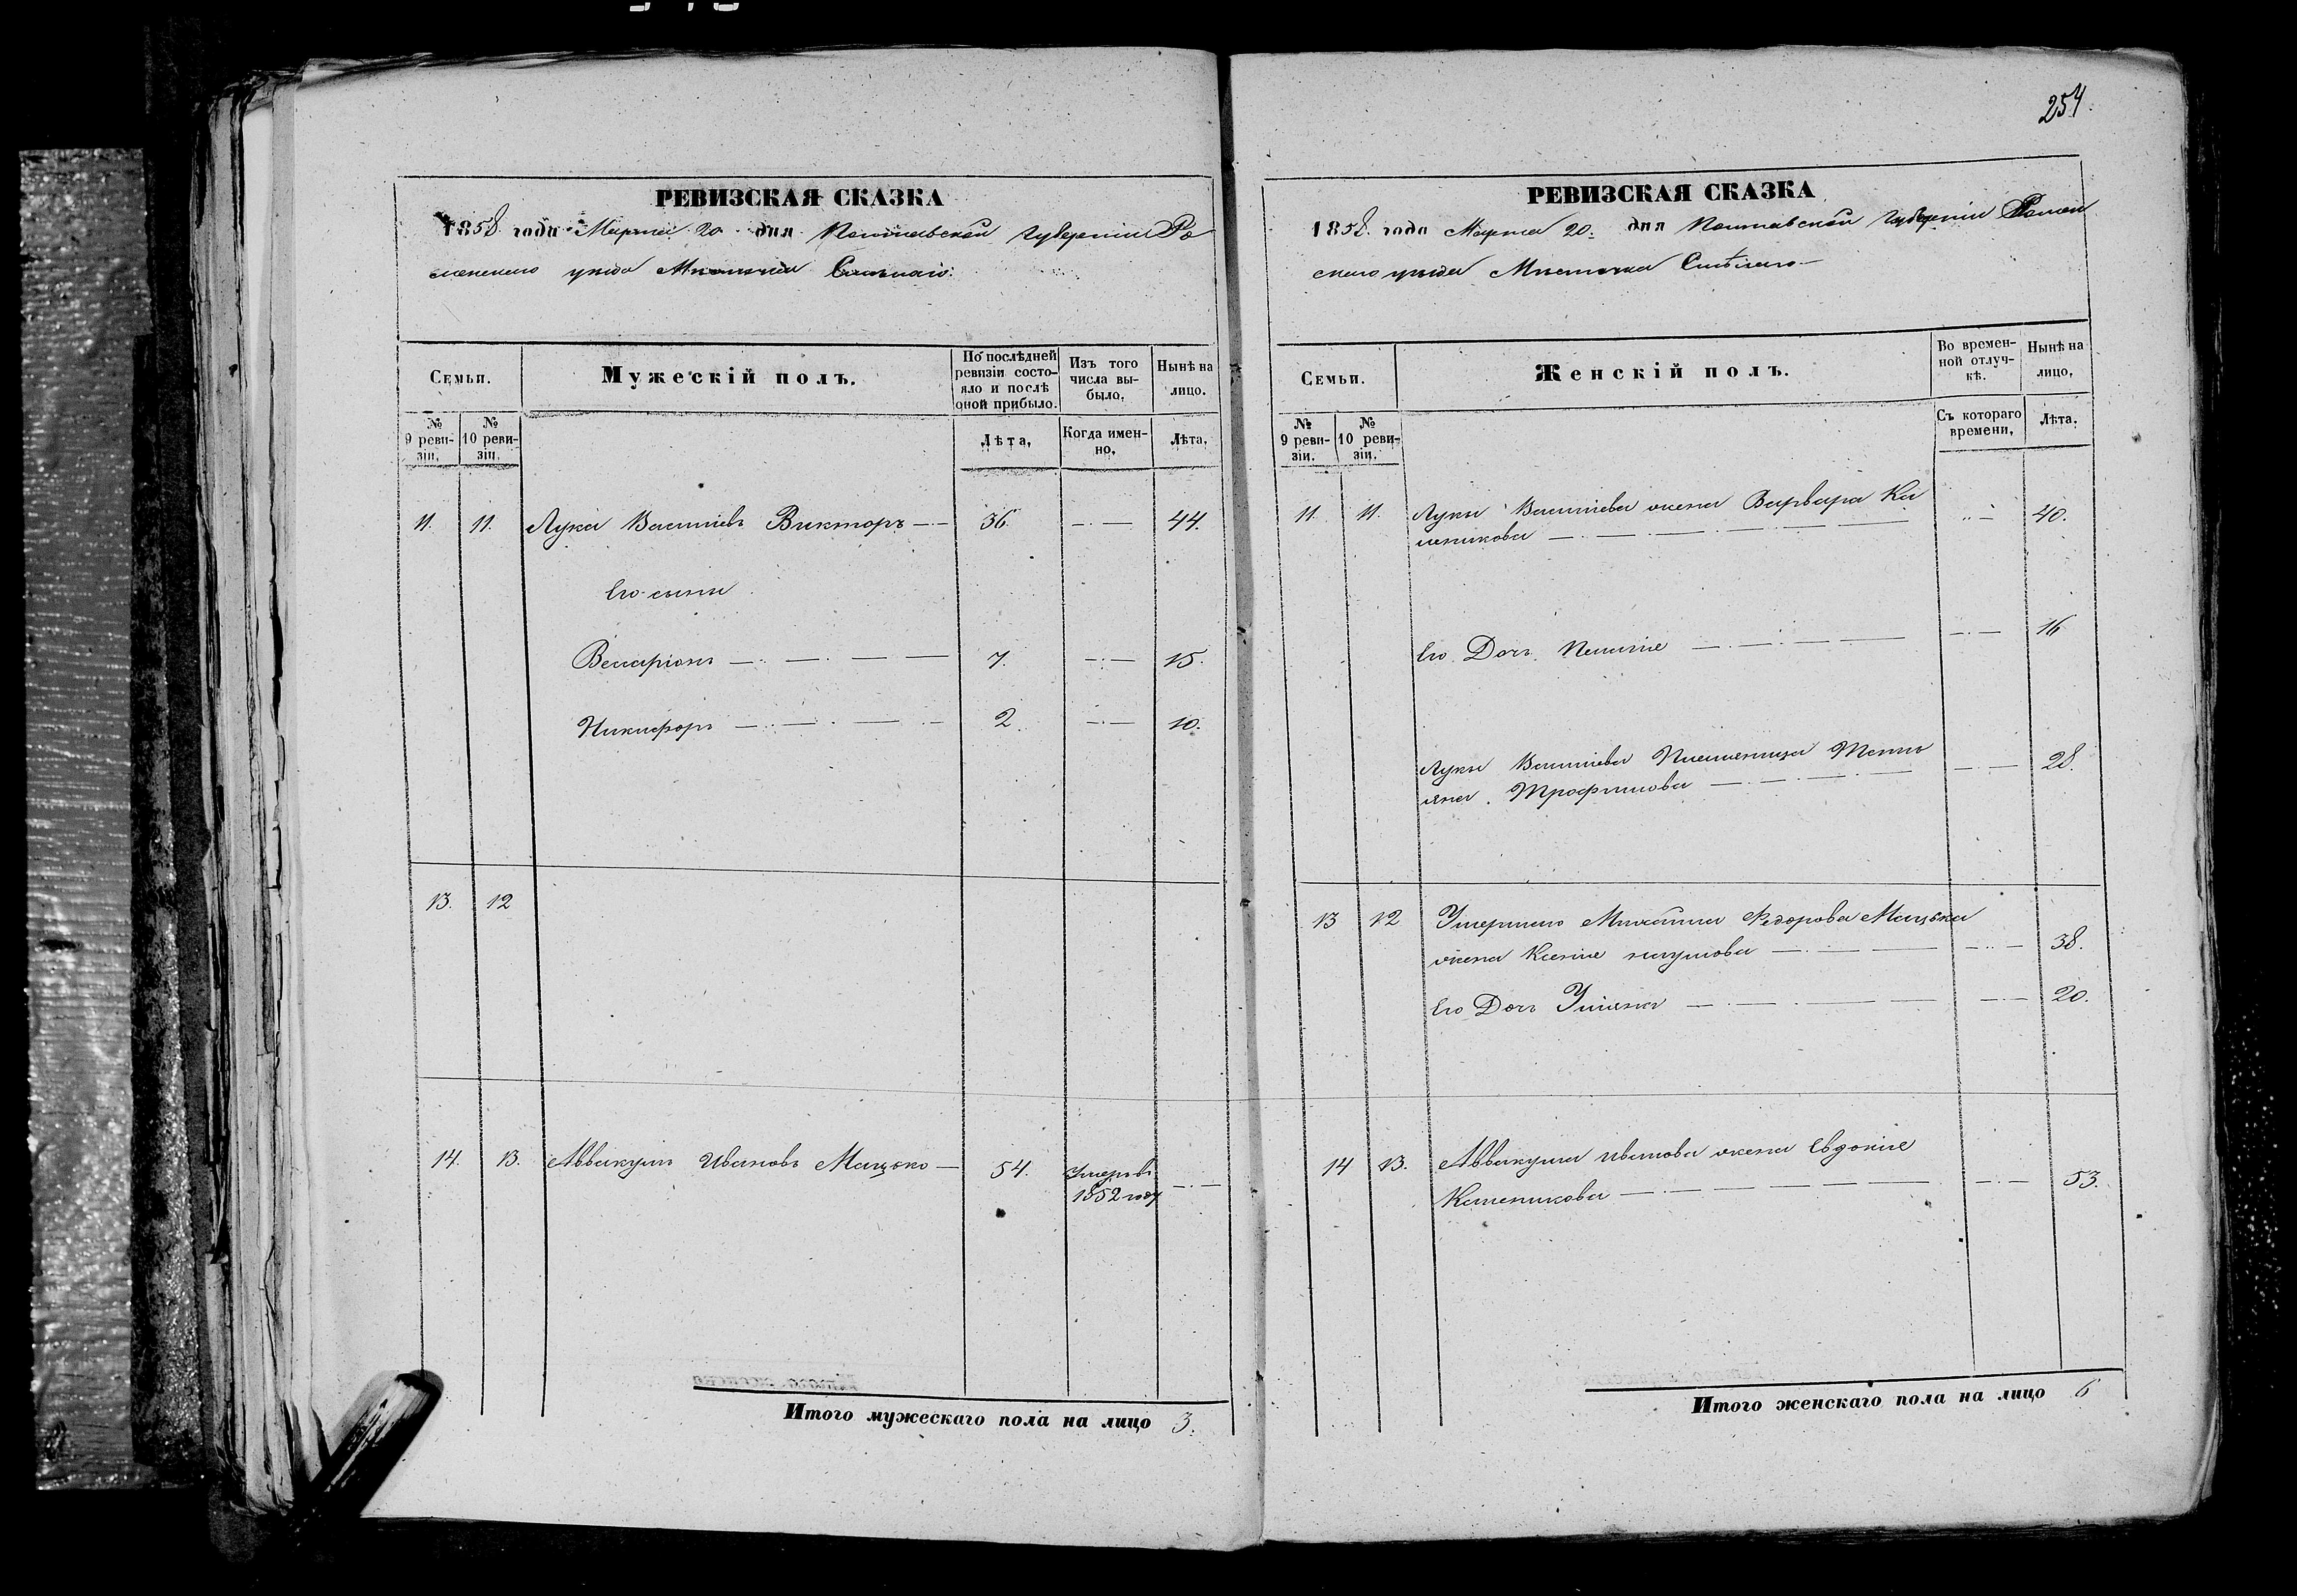 254.
РЕВИЗСКАЯ СКАЗКА
1858 года Марта 20 дня Полтавской губерніи Ро
менскаго уезда Местечка Смелаго
Семьи.
Мужескій полъ.
По послѣдней ревизіи состояло и послѣ оной прибыло.
Изъ того числа выбыло.
Нынѣ на лицо.
№ 9 ревизіи.
№ 10 ревизіи.
Лѣта.
Когда именно.
Лѣта.
11. 11. Лука Васильевъ Викторъ 36. 44.
Его сыны
Весаріонъ 7. 15.
Никифоръ 2. 10.
13. 12
14. 13. Аввакумъ Ивановъ Мацько 54. умеръ въ
1852 году
Итого мужескаго пола на лицо 3.
РЕВИЗСКАЯ СКАЗКА
1858. года Марта 20. дня Полтавской губерніи Ромен
скаго уезда Местечка Смѣлаго
Семьи.
Женскій полъ.
Во временной отлучкѣ.
Нынѣ на лицо.
№ 9 ревизіи.
№ 10 ревизіи.
Съ котораго времени.
Лѣта.
11. 11. Луки Васильева жена Варвара
40.
Его Дочь 16
Луки Васильева Племеница Тать
яна Трофимова 28.
13 12 Умершаго Михайла Федорова Мацька
жена Ксенiя Наумова 38.
Его Дочь Уліяна 20.
14 13. Аввакума Иванова жена Евдокія
53.
Итого женскаго пола на лицо 6